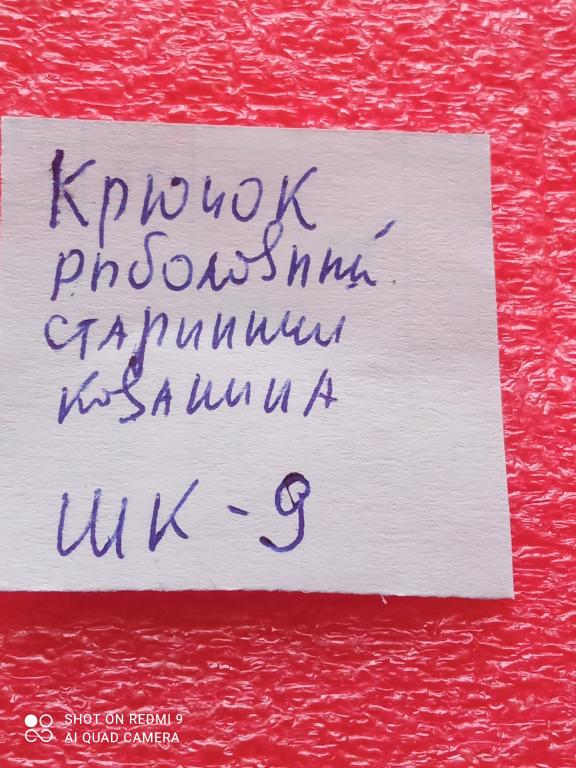 Крючок
рыболовный
старинный
кованина
ШК-9
SHOT ON REDMI 9
AI QUAD CAMERA